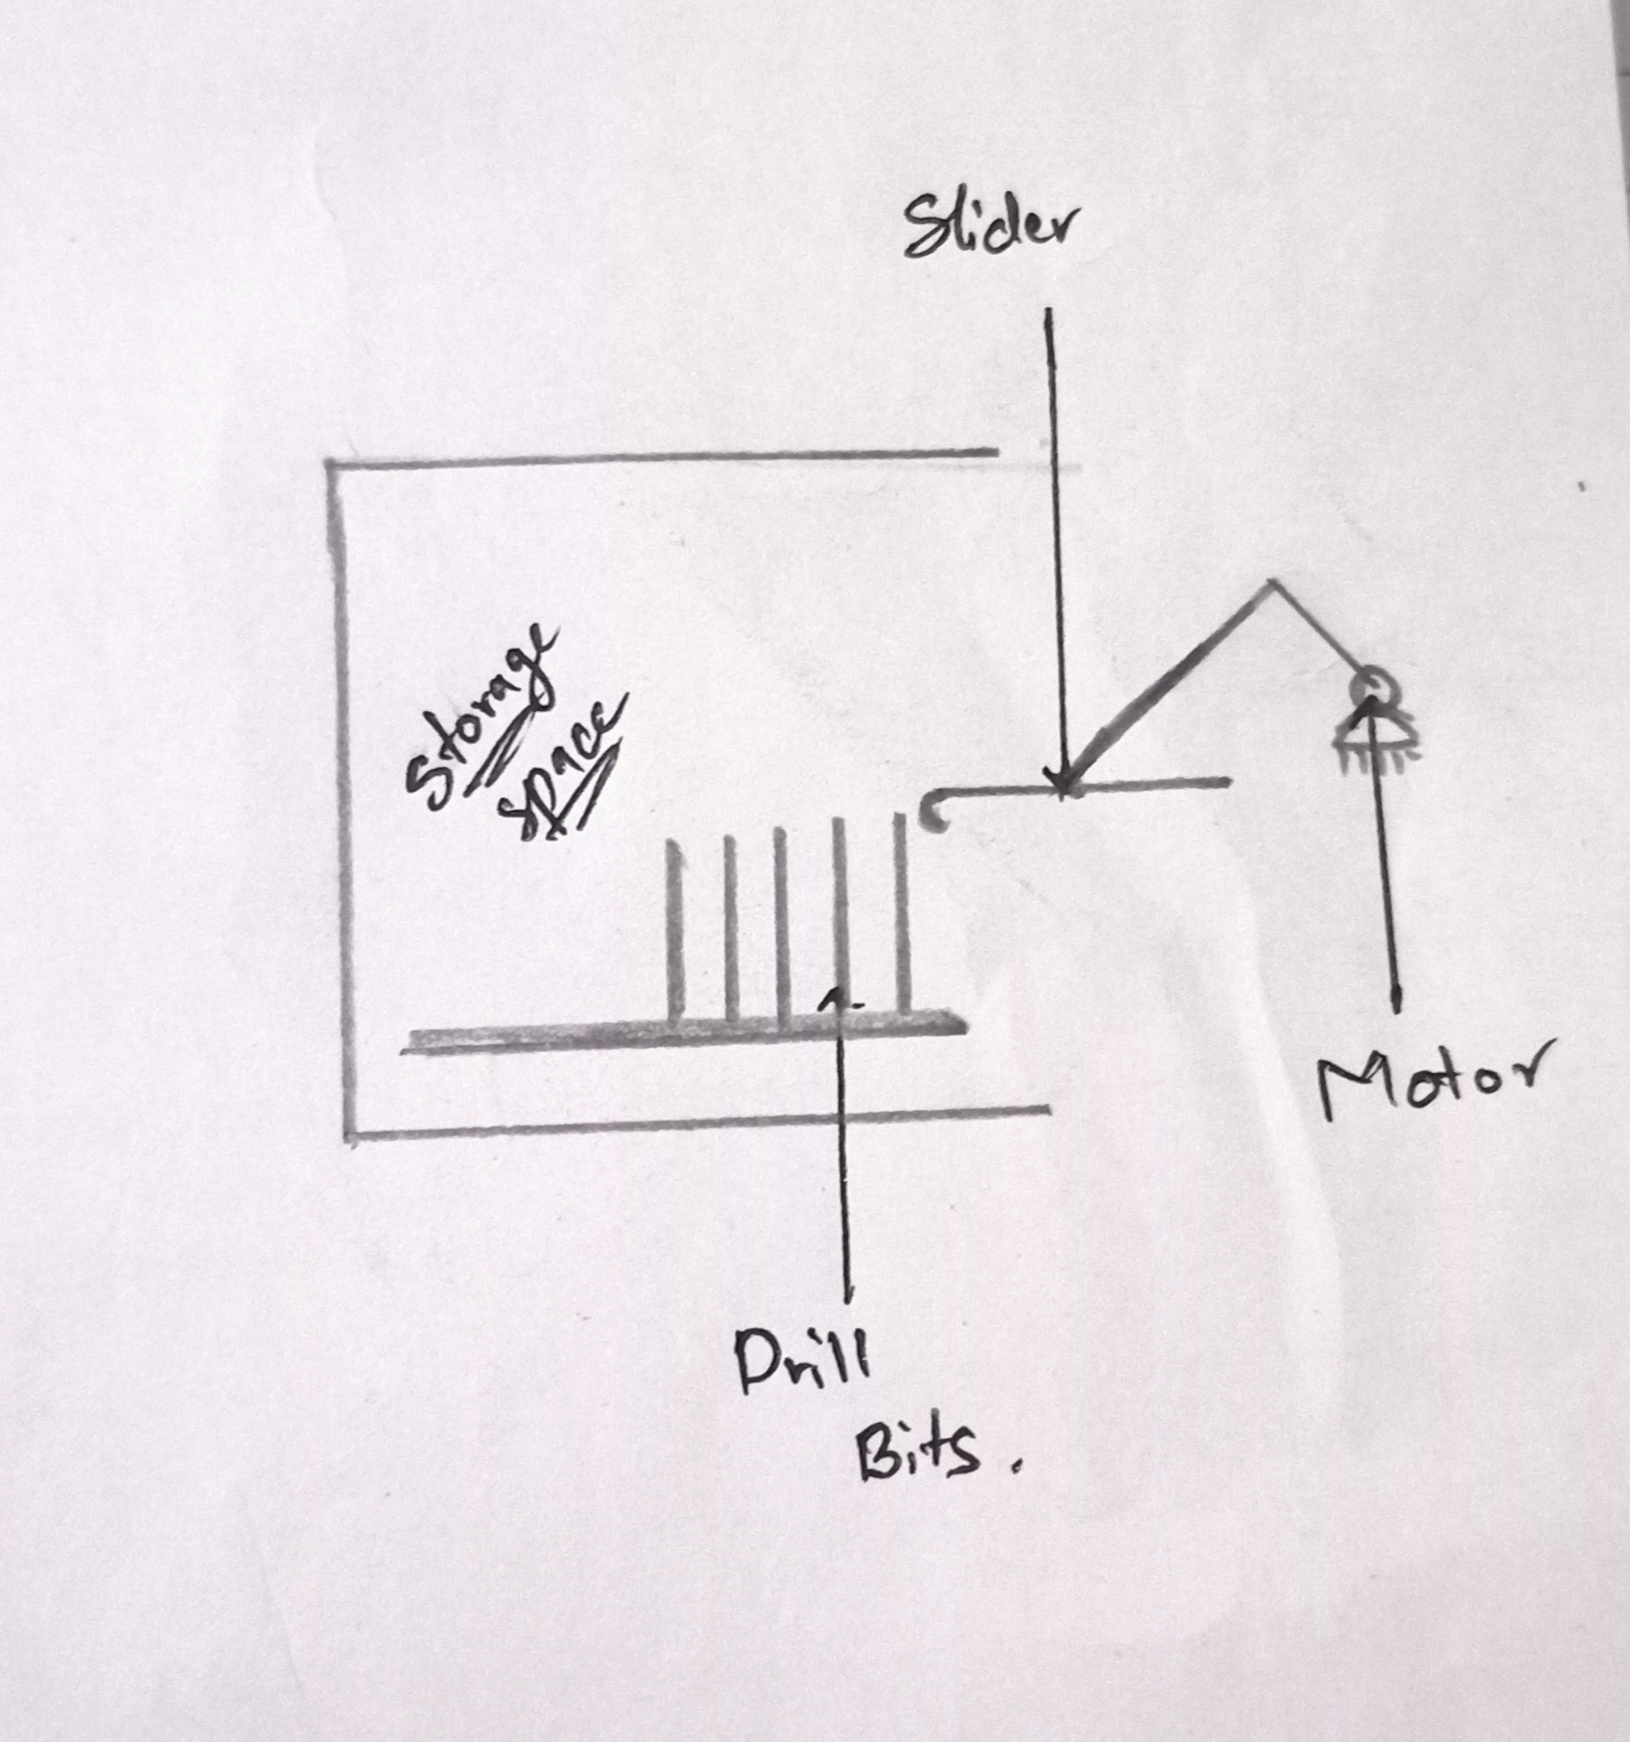 Slider
Storage
space
Motor
Drill
Bits.